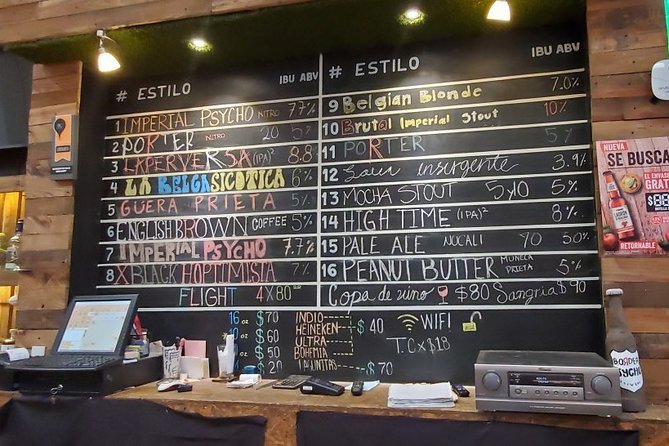 # ESTILO IBU ABV
1 IMPERIAL PSYCHO NITRO 7.7%
2 PORTER NITRO 20 5%
3 LXPERVERSA (IPA)² 8.8
4 LA BELGASICOTICA 6%
5 GÜERA PRIETA 5%
6 ENGLISH BROWN COFFEE 5%
7 IMPERIAL PSYCHO 7.7%
8 XBLACK HOPTIMISTA 7%
FLIGHT 4X80
# ESTILO IBU ABV
9 Belgian Blonde 7.0%
10 Brutal Imperial Stout 10%
11 PORTER 5%
12 Sour insurgente 3.9%
13 MOCHA STOUT 5%
14 HIGH TIME (IPA)² 8%
15 PALE ALE NOCALI 50%
16 PEANUT BUTTER MUÑECA PRIETA 5%
Copa de vino $80 Sangria $90
16 oz $70
oz $60
oz $50
oz $20
INDIO
HEINEKEN
ULTRA
BOHEMIA
LAGUNITAS
$40
$70
WIFI
T.C x $18
NUEVA
SE BUSCA
EL ENVASE
GRATIS
RETORNABLE
BORDER
PSYCHO